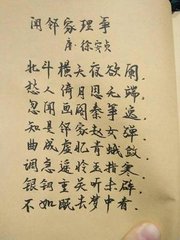 闻邻家理筝
唐·徐安贞
北斗横天夜欲阑,
愁人倚月思无端。
忽闻画阁秦筝逸,
知是邻家赵女弹。
曲成虚忆青蛾敛,
调急遥怜玉指寒。
银钥重关听未辟,
不如眠去梦中看。